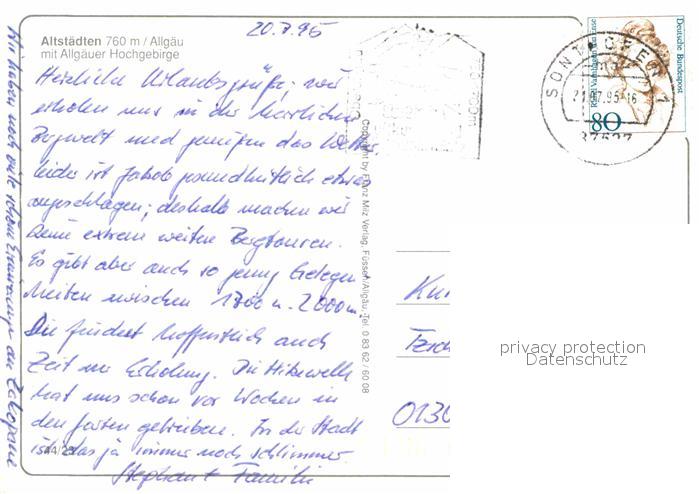 20.7.95
Altstädten 760 m / Allgäu
mit Allgäuer Hochgebirge
Herzliche Urlaubsgrüße; wir
erholen uns in der herrlichen
Bergwelt und genießen das Wetter
leider ist Jakob gesundheitlich etwas
angeschlagen; deshalb machen wir
keine extrem weiten Bergtouren.
Es gibt aber auch so genug Gelegen
heiten zwischen 1700 u. 2000 m.
Du findest hoffentlich auch
Zeit zur Erholung. Die Hitzewelle
hat uns schon vor Wochen in
den Garten getrieben. In der Stadt
ist das ja immer noch schlimmer.
Stephan + Familie
Wir haben noch viele schöne Erinnerungen an Zakopane
Copyright by Franz Milz Verlag, Füssen/Allgäu · Tel. 0 83 62 / 60 08
Deutsche Bundespost
80
SONTHOFEN 1
21.07.95-16
87527
Ku
0130
privacy protection
Datenschutz